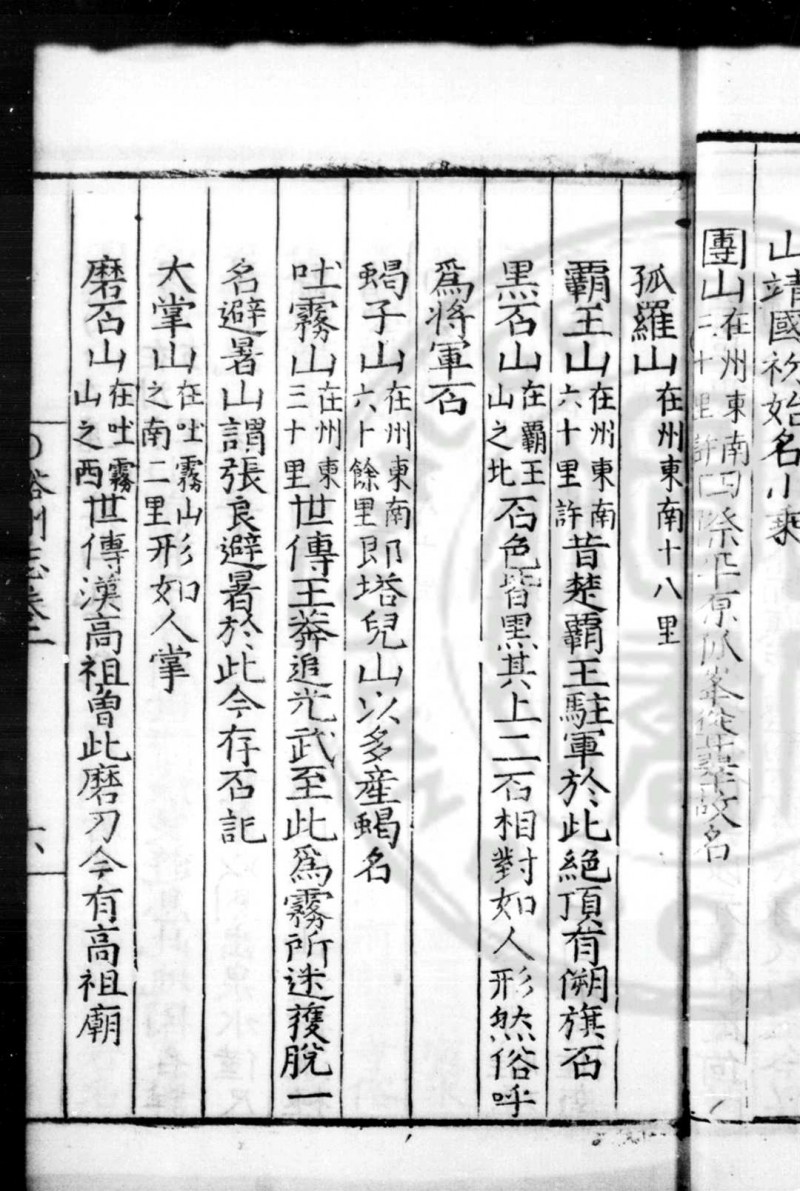 山靖國初始名小乘
團山在州東南二十里許四際平原孤峯從中挺故名
孤羅山在州東南十八里
霸王山在州東南六十里許昔楚霸王駐軍於此絶頂有㨍旗石
黑石山在霸王山之北石色皆黑其上二石相對如人形然俗呼
爲將軍石
蝎子山在州東南六十餘里即塔兒山以多産蝎名
吐霧山在州東三十里世傳王莽追光武至此爲霧所迷獲脫一
名避暑山謂張良避暑於此今存石記
大掌山在吐霧山之南二里形如人掌
磨石山在吐霧山之西世傳漢高祖曾此磨刃今有高祖廟
裕州志卷二
六